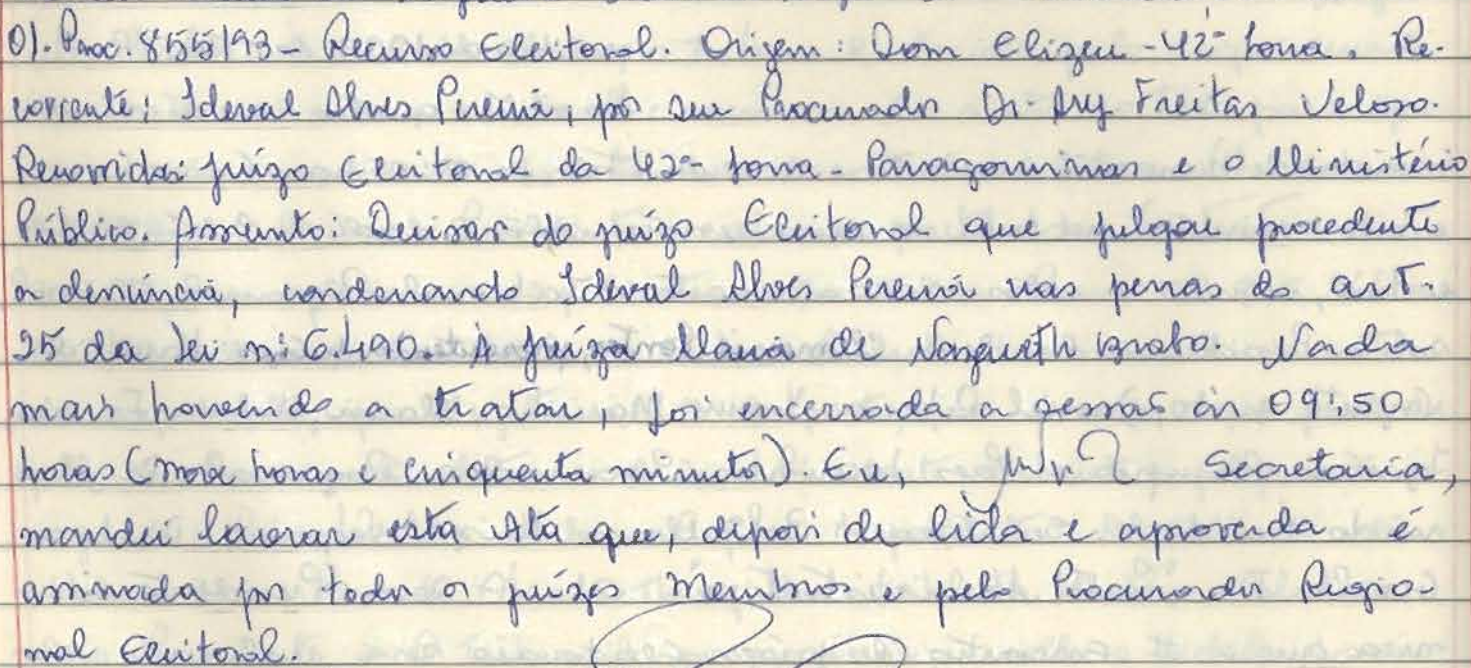 01. Proc. 855/93 - Recurso Eleitoral. Origem: Dom Elizeu - 42ª Zona. Re-
corrente: Ideval Alves Pereira, por seu Procurador Dr. Ary Freitas Veloso.
Recorridos: Juízo Eleitoral da 42ª Zona - Paragominas e o Ministério
Público. Assunto: Decisão do juízo Eleitoral que julgou procedente
a denúncia, condenando Ideval Alves Pereira nas penas do art.
25 da Lei nº 6.490. À juíza Maria de Nazareth Brabo. Nada
mais havendo a tratar, foi encerrada a sessão às 09:50
horas (nove horas e cinquenta minutos). Eu, Secretaria,
mandei lavrar esta Ata que, depois de lida e aprovada é
assinada por todos os juízes Membros e pelo Procurador Regio-
nal Eleitoral.